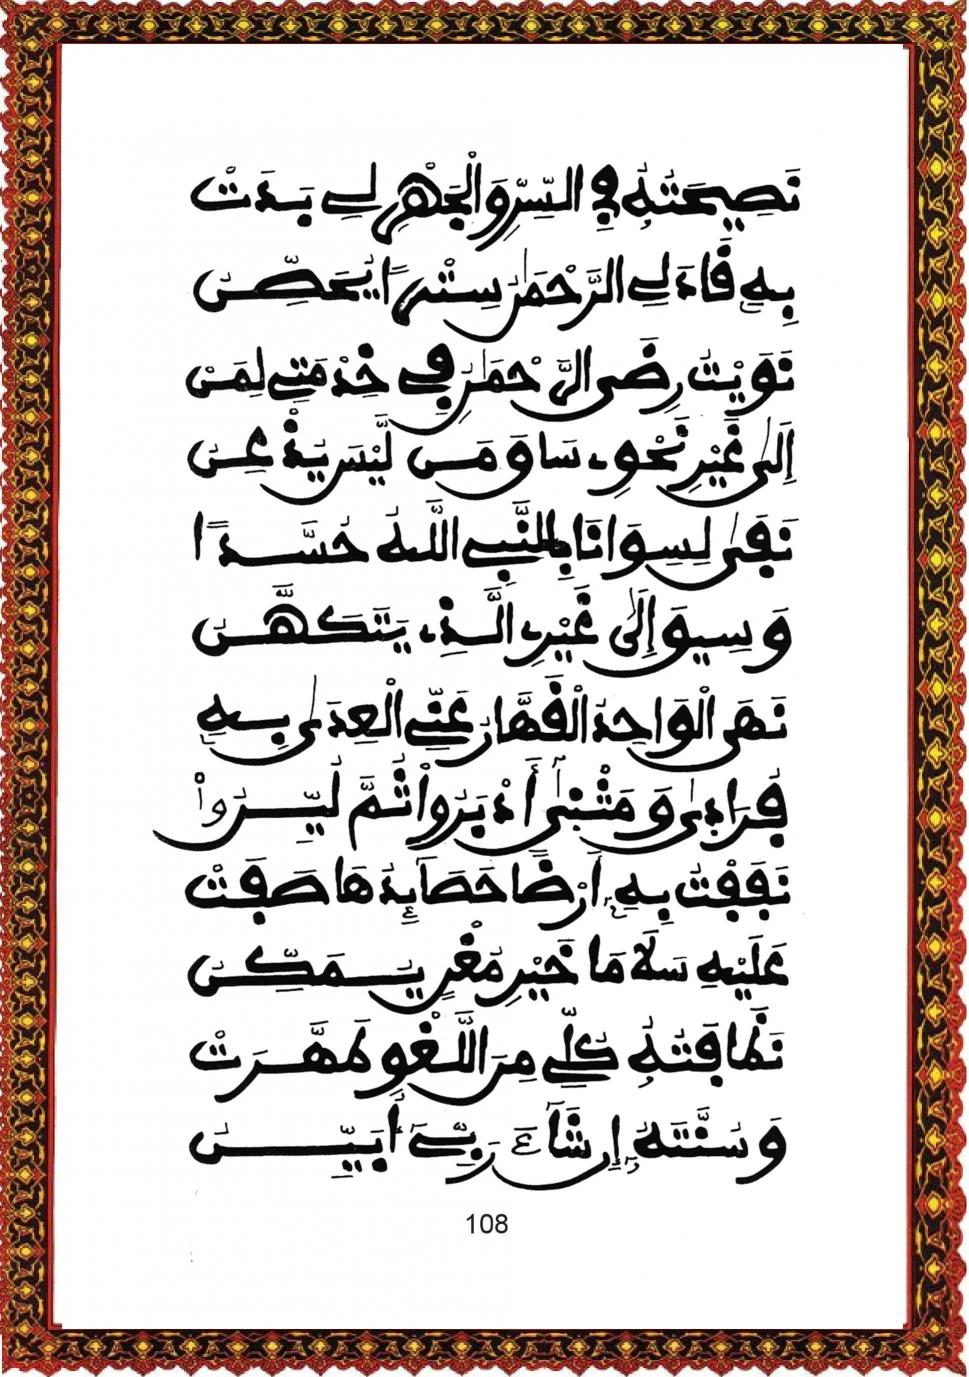 نَصِيحَتُهُ فِي السِّرِّ وَالْجَهْرِ لِي بَدَتْ
بِهِ قَادَ لِي الرَّحْمَٰنُ سِتْرًا يُحَصِّنُ
نَوَيْتُ رِضَى الرَّحْمَٰنِ فِي خِدْمَتِي لِمَنْ
إِلَى غَيْرِ نَحْوِي سَاقَ مَن لَيْسَ يُذْعِنُ
نَفَى لِسِوَانَا بِالنَّبِي اللَّهُ حُسَّدًا
وَسِيقَ إِلَى غَيْرِي الَّذِي يَتَكَهَّنُ
نَهَى الْوَاحِدُ الْقَهَّارُ عَنِّي الْعِدَى بِهِ
فُرَادَى وَمَثْنَى أَدْبَرُوا ثُمَّ لُيِّنُوا
نَفَقْتُ بِهِ أَرْضًا حَصَائِدُهَا صَفَتْ
عَلَيْهِ سَلَامَا خَيْرِ مُغْنٍ يُمَكِّنُ
نَظَافَتُهُ كُلِّي مِنَ اللَّغْوِ طَهَّرَتْ
وَسُنَّتَهُ إِن شَاءَ رَبِّيَ أُبَيِّنُ
108